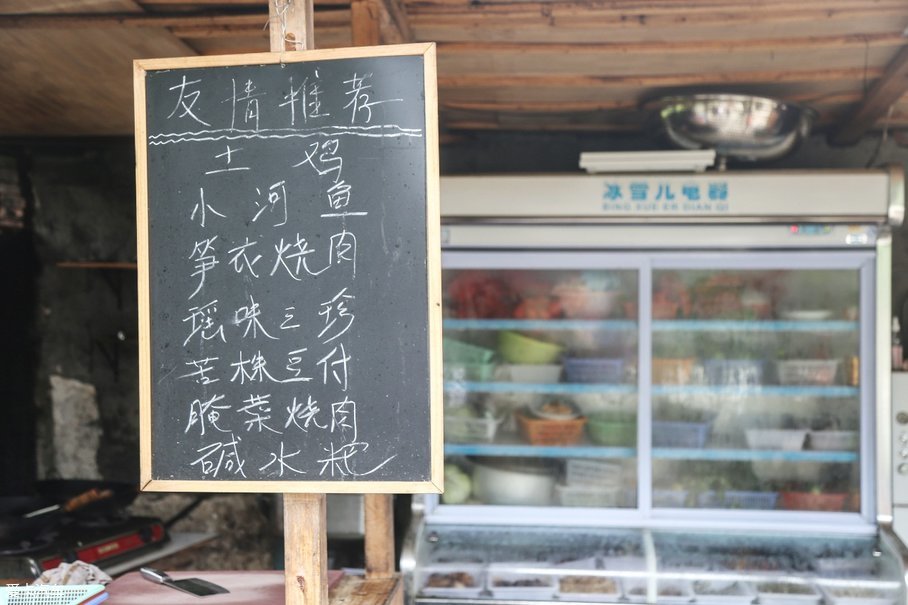 友情推荐
土鸡
小河鱼
笋衣烧肉
瑶味三珍
苦株豆付
腌菜烧肉
碱水粑
冰雪儿电器
BING XUE ER DIAN QI